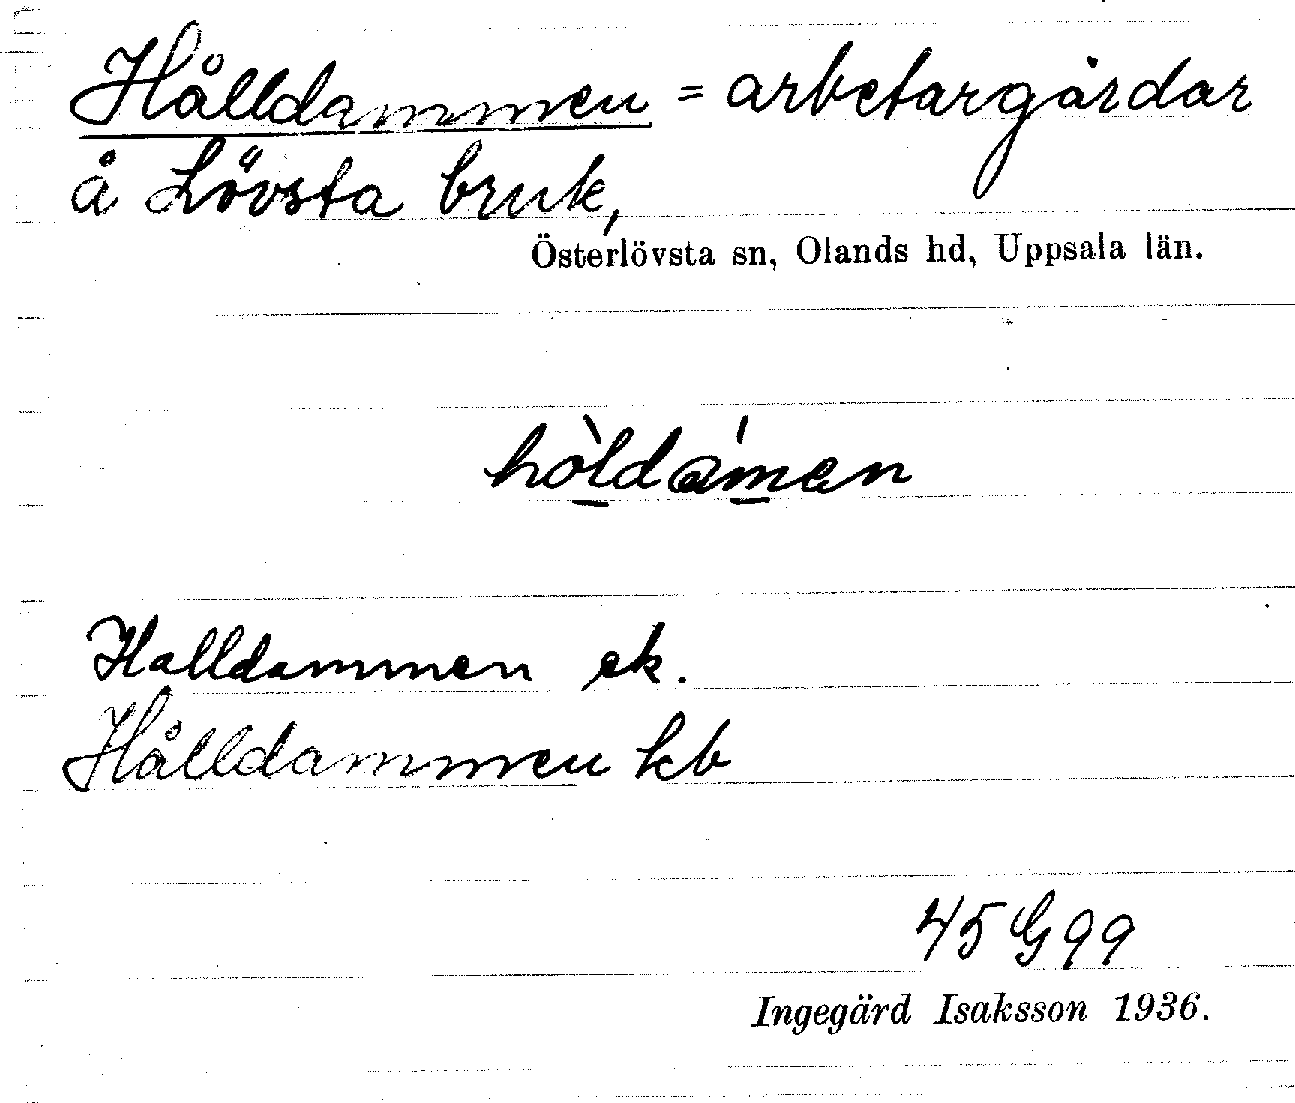 Hålldammen = arbetargårdar
å Lövsta bruk,
Österlövsta sn, Olands hd, Uppsala län.
hòldámən
Halldammen ek.
Hålldammen kb
45 G 99
Ingegärd Isaksson 1936.